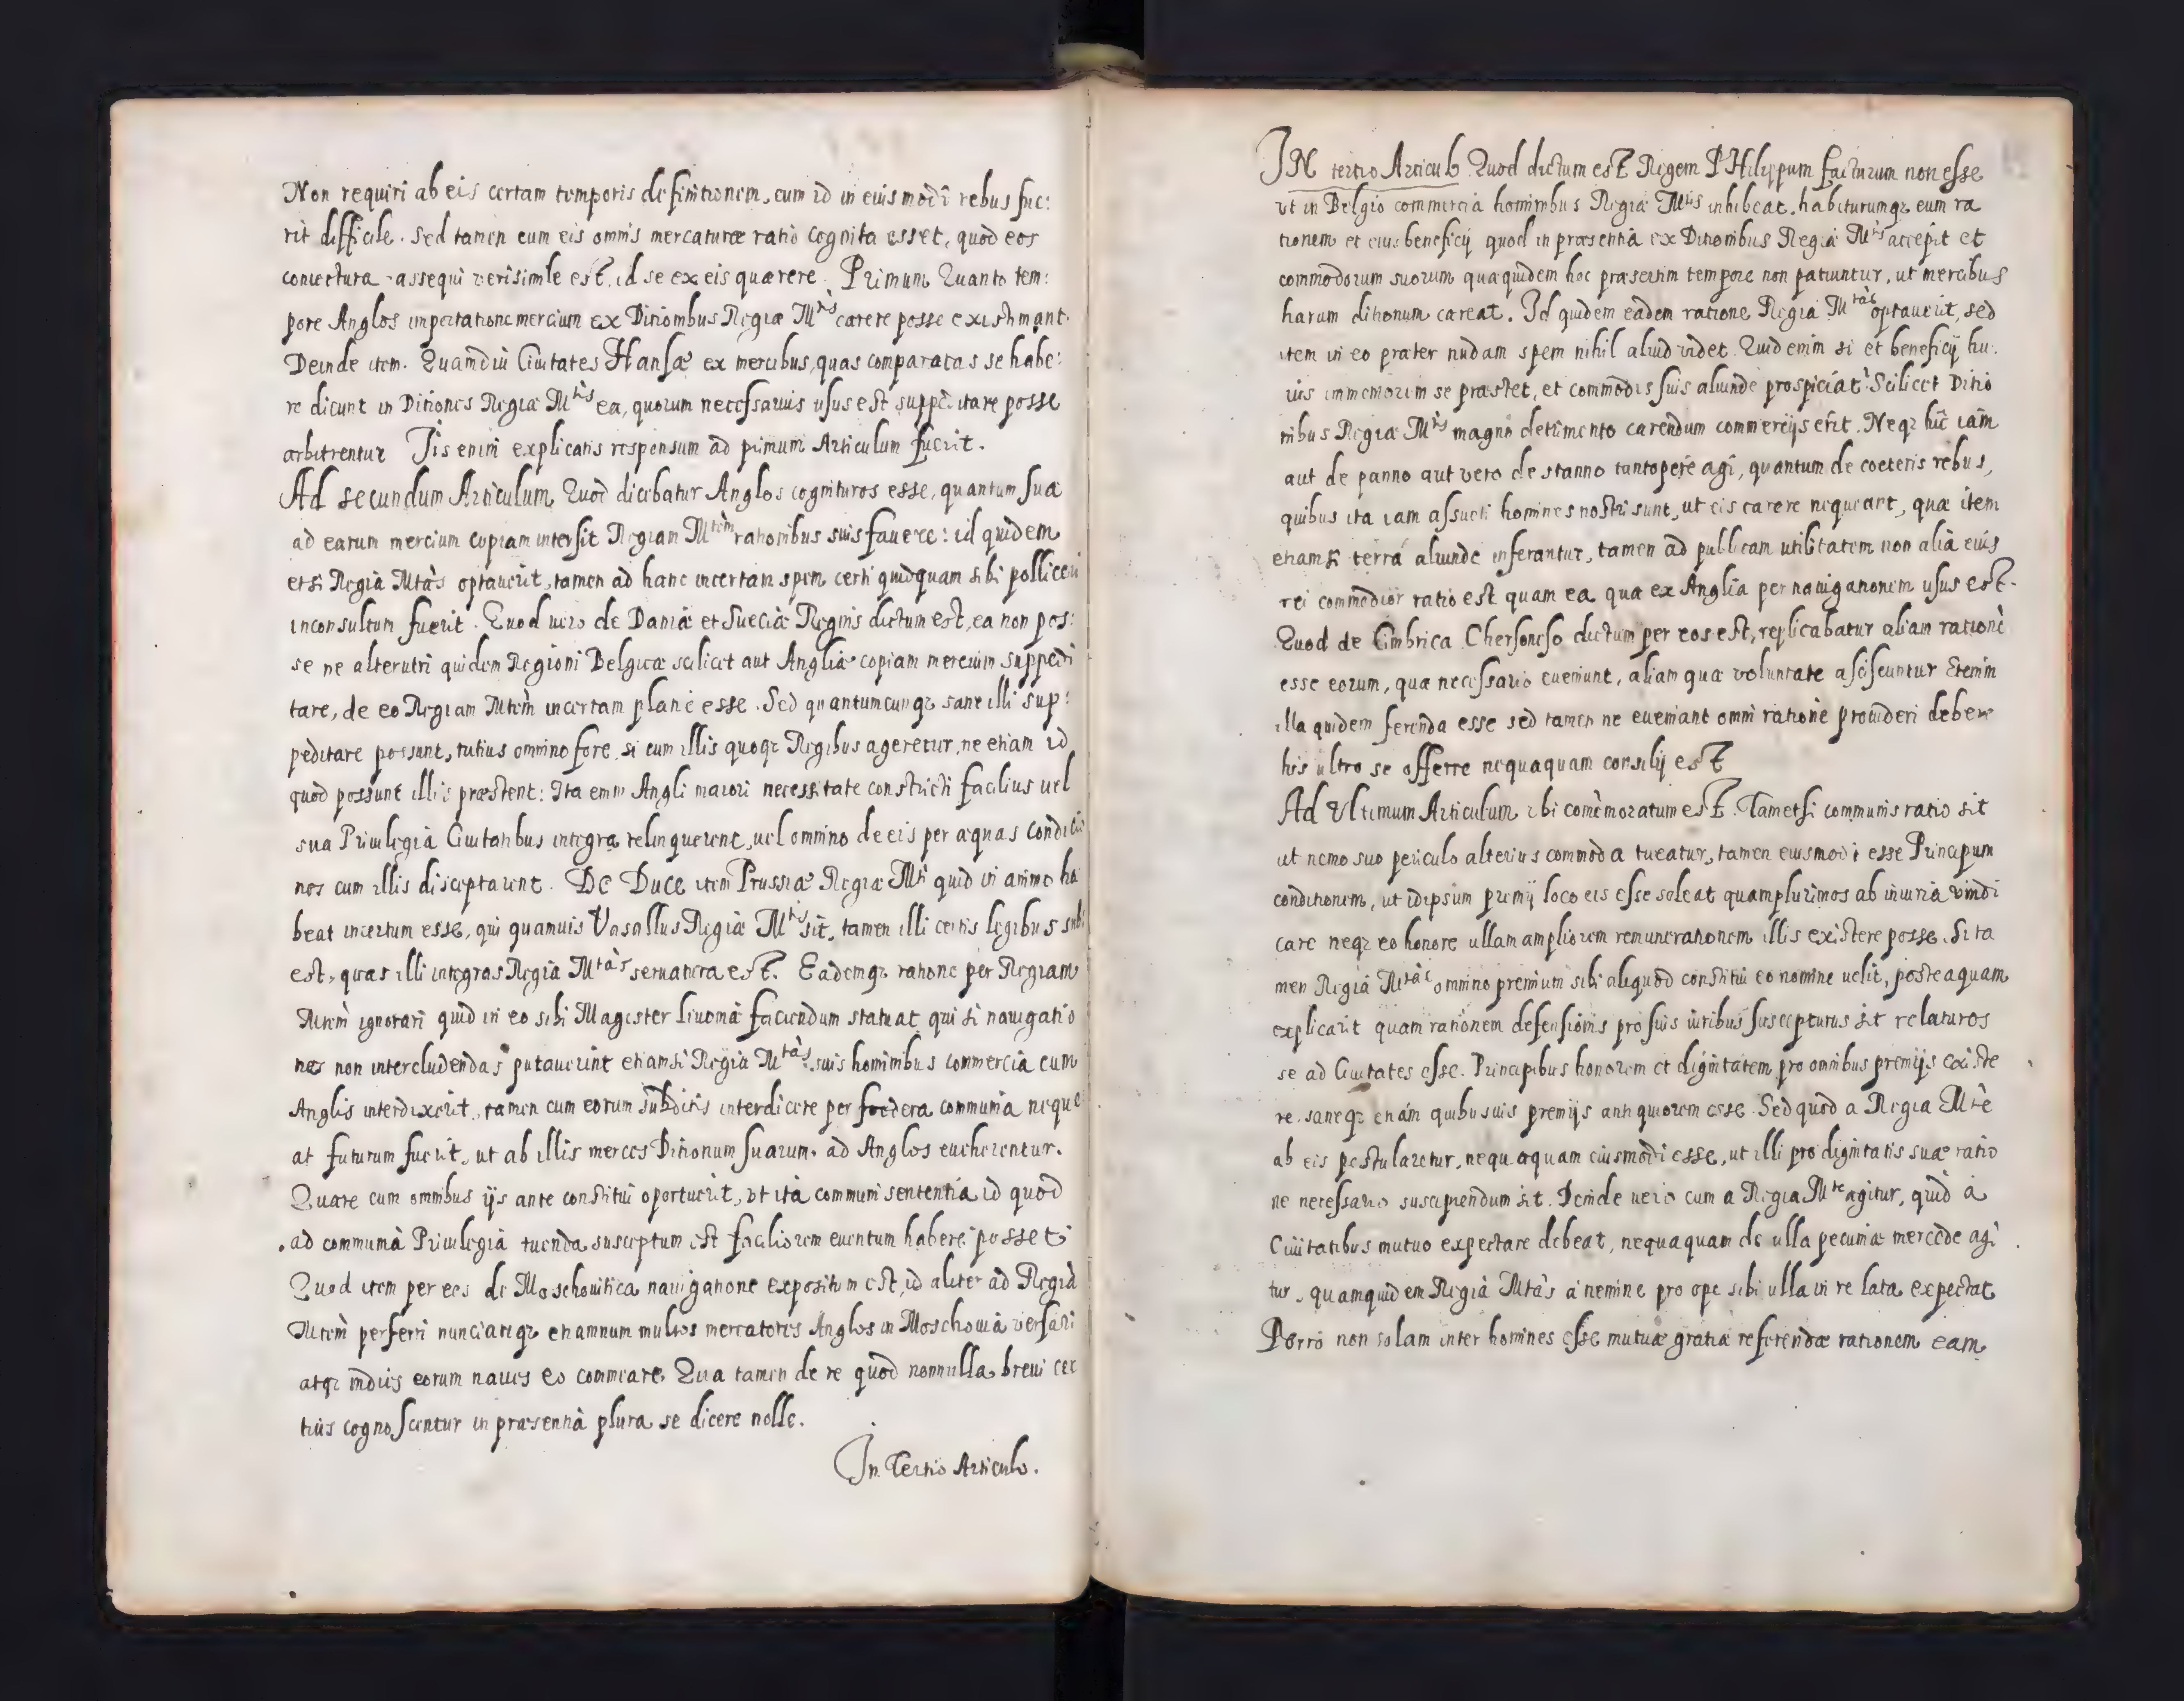 Non requiri ab eis certam temporis definitionem, cum id in eiusmodi rebus fue:
rit difficile. Sed tamen cum eis omnis mercaturæ ratio cognita esset, quod eos
coniectura assequi verisimile est, id se ex eis quærere. Primum Quanto tem:
pore Anglos importatione mercium ex Ditionibus Regiæ Mtis carere posse existimant.
Deinde item. Quamdiu Ciuitates Hansæ ex mercibus, quas comparatas se habe:
re dicunt in Ditiones Regiæ Mtis ea, quorum necessarius usus est suppeditare posse
arbitrentur Iis enim explicatis responsum ad primum Articulum fuerit.
Ad secundum Articulum Quod dicebatur Anglos cognituros esse, quantum sua
ad earum mercium copiam intersit Regiam Mtem rationibus suis fauere: id quidem
etsi Regia Mtas optauerit, tamen ad hanc incertam spem certi quidquam sibi polliceri
inconsultum fuerit. Quod uero de Daniæ et Sueciæ Regnis dictum est, ea non pos:
se ne alterutri quidem Regioni Belgicæ scilicet aut Angliæ copiam mercium suppedi
tare, de eo Regiam Mtem incertam plane esse. Sed quantumcunqz sane illi sup:
peditare possunt, tutius omnino fore, si cum illis quoqz Regibus ageretur, ne etiam id
quod possunt illis præstent: Ita enim Angli maiori necessitate constricti facilius uel
sua Priuilegia Ciuitatibus integra relinquerent, uel omnino de eis per æquas conditio
nes cum illis disceptarent. De Duce item Prussiæ Regiæ Mti quid in animo ha
beat incertum esse, qui quamuis Vasallus Regiæ Mtis sit, tamen illi certis legibus sub
est, quas illi integras Regia Mtas seruatura est. Eademqz ratione per Regiam
Mtem ignorari quid in eo sibi Magister Liuoniæ faciendum statuat, qui si nauigatio
nes non intercludendas putauerint etiamsi Regia Mtas suis hominibus commercia cum
Anglis interdixerit, tamen cum eorum subditis interdicere per foedera communia neque
at futurum fuerit, ut ab illis merces Ditionum suarum ad Anglos eueherentur.
Quare cum omnibus ijs ante constitui oportuerit, vt ita communi sententia id quod
ad communia Priuilegia tuenda susceptum est faciliorem euentum habere posset
Quod item per eos de Moschouitica nauigatione expositum est, id aliter ad Regia
Mtem perferri nunciariqz etiamnum multos mercatores Anglos in Moschouia versari
atqz indies eorum naues eo commeare. Qua tamen de re quod nonnulla breui cer
tius cognoscentur in præsentia plura se dicere nolle.
In Tertio Articulo.
IN tertio Articulo Quod dictum est Regem PHilippum facturum non esse
vt in Belgio commercia hominibus Regiæ Mtis inhibeat, habiturumqz eum ra
tionem et eius beneficij quod in præsentia ex Ditionibus Regiæ Mtis accepit et
commodorum suorum quæ quidem hoc præsertim tempore non patiuntur, ut mercibus
harum ditionum careat. Id quidem eadem ratione Regia Mtas optauerit, sed
item in eo præter nudam spem nihil aliud videt. Quid enim si et beneficij hu:
ius immemorem se præstet, et commodis suis aliunde prospiciat? Scilicet Ditio
nibus Regiæ Mtis magno detrimento carendum commercijs erit. Neqz hic iam
aut de panno aut vero de stanno tantopere agi, quantum de coeteris rebus,
quibus ita iam assueti homines nostri sunt, ut eis carere nequeant, quæ item
etiamsi terra aliunde inferantur, tamen ad publicam utilitatem non alia eius
rei commodior ratio est quam ea qua ex Anglia per nauigationem usus est.
Quod de Cimbrica Chersoneso dictum per eos est, replicabatur aliam rationē
esse eorum, quæ necessario eueniunt, aliam quæ voluntate asciscuntur Etenim
illa quidem ferenda esse sed tamen ne eueniant omni ratione prouideri debere
his ultro se offerre nequaquam consilij est
Ad Vltimum Articulum vbi comēmoratum est. Tametsi communis ratio sit
ut nemo suo periculo alterius commoda tueatur, tamen eiusmodi esse Principum
conditionem, ut idipsum premij loco eis esse soleat quamplurimos ab iniuria vindi
care neqz eo honore ullam ampliorem remunerationem illis existere posse. Si ta
men Regia Mtas omnino premium sibi aliquod constitui eo nomine uelit, posteaquam
explicarit quam rationem defensionis pro suis iuribus susceptura sit relaturos
se ad Ciuitates esse. Principibus honorem et dignitatem pro omnibus premijs existe
re, saneqz etiam quibusuis premijs antiquiorem esse. Sed quod a Regia Mte
ab eis postularetur, nequaquam eiusmodi esse, ut illi pro dignitatis suæ ratio
ne necessario suscipiendum sit. Deinde uero cum a Regia Mte agitur, quid a
Ciuitatibus mutuo expectare debeat, nequaquam de ulla pecuniæ mercede agi
tur, quamquidem Regia Mtas a nemine pro ope sibi ulla in re lata expectat
Porro non solam inter homines esse mutuæ gratiæ referendæ rationem eam